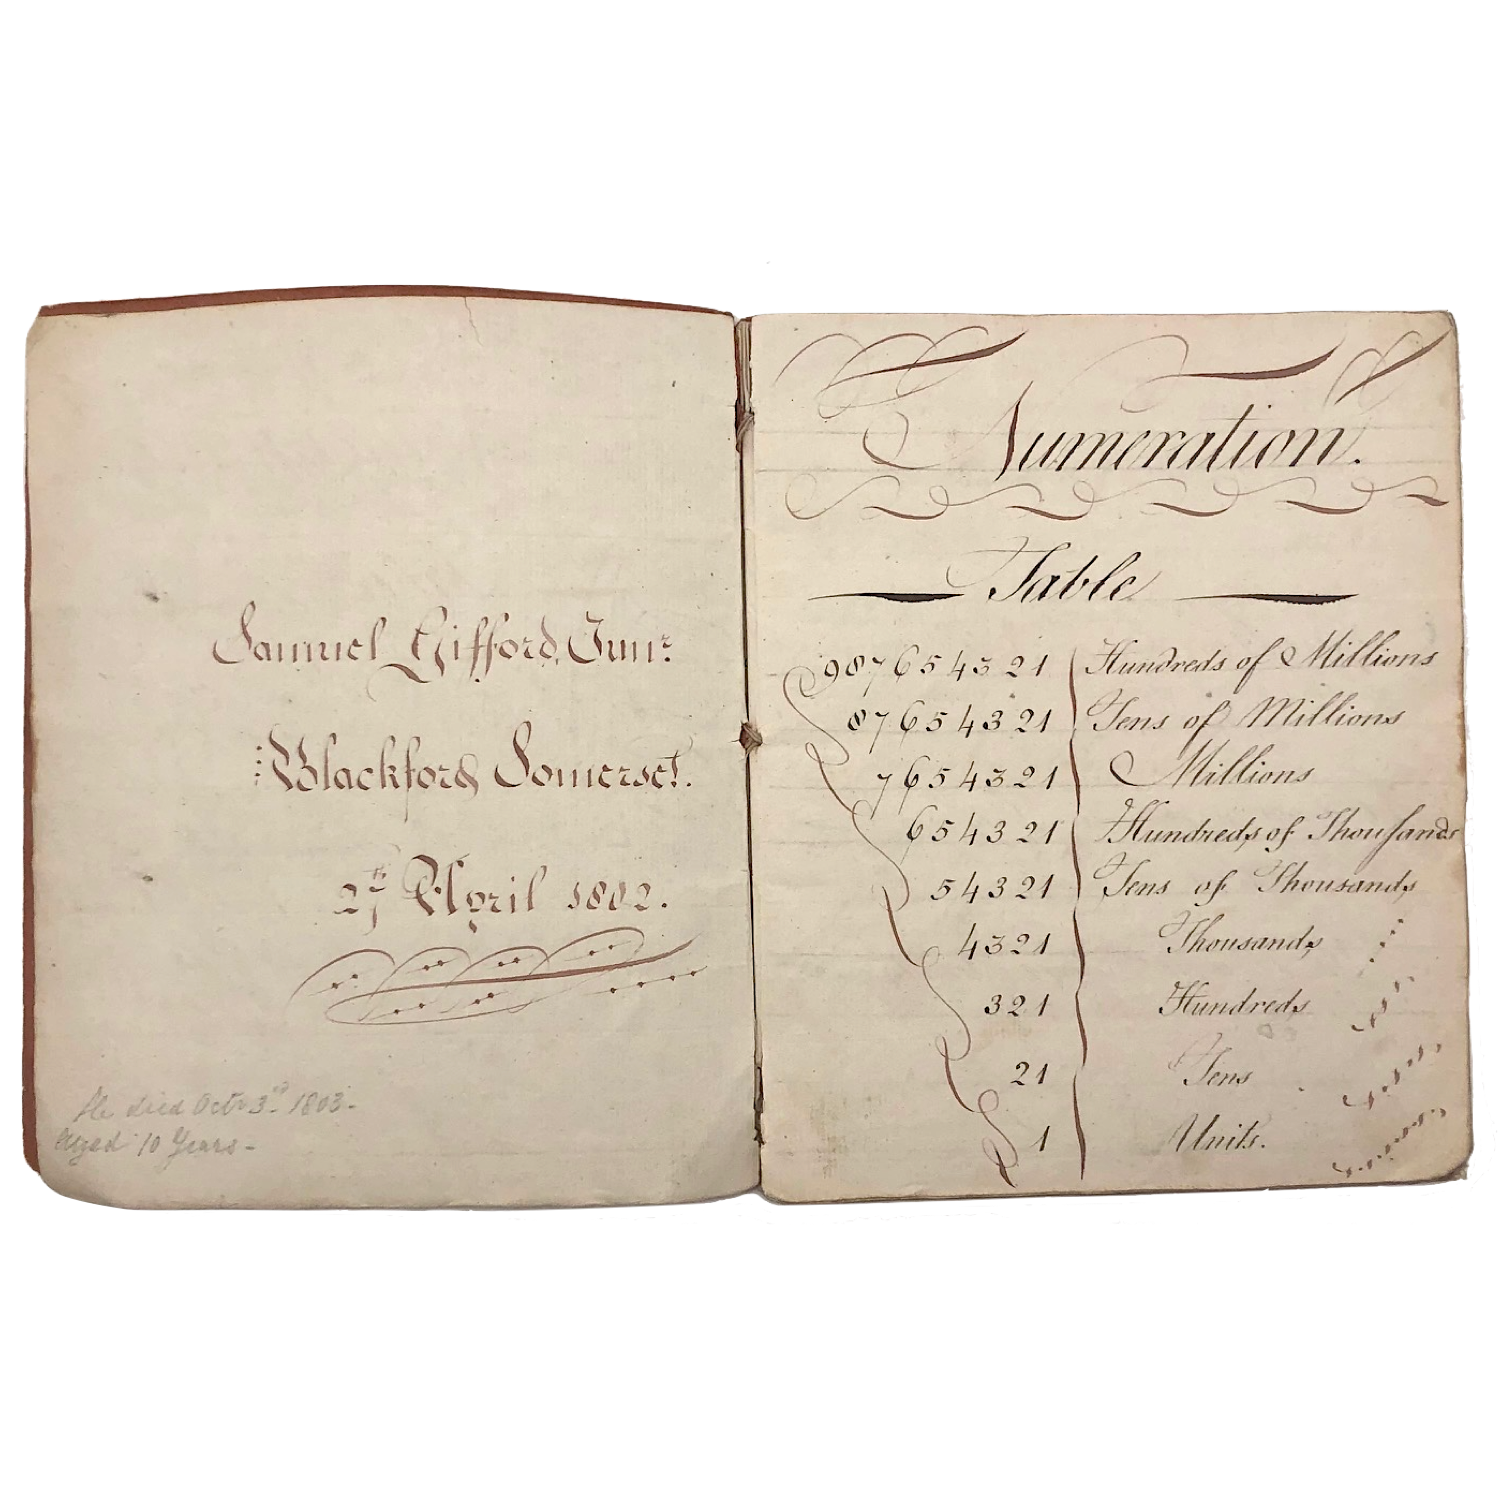 Samuel Gifford, Junr.
Blackford Somerset.
27th April 1802.
He died Octr 3rd 1803-
Aged 10 Years-
Numeration.
Table
987654321 Hundreds of Millions
87654321 Tens of Millions
7654321 Millions
654321 Hundreds of Thouſands
54321 Tens of Thousands
4321 Thousands
321 Hundreds
21 Tens
1 Units.